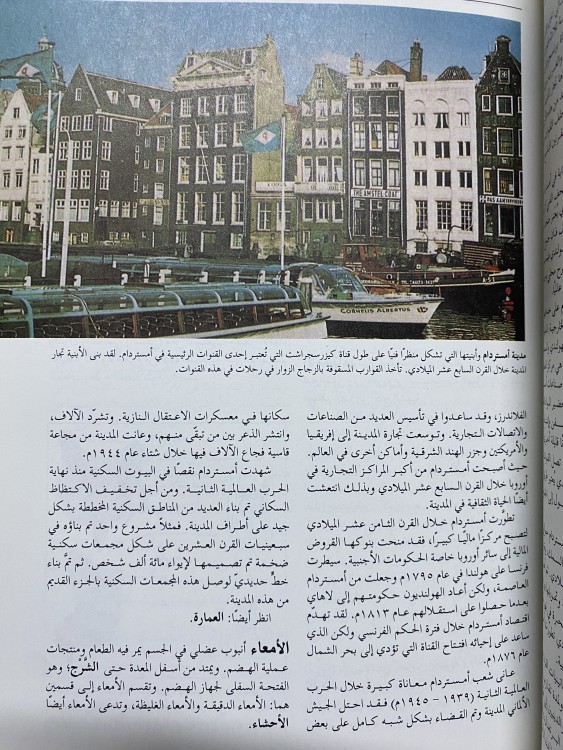 THE AMSTEL
CORNELIS ALBERTUS
مدينة أمستردام وأبنيتها التي تشكل منظرًا فنيًا على طول قناة كيزرسجراشت التي تُعتبر إحدى القنوات الرئيسية في أمستردام. لقد بنى الأبنية تجار
المدينة خلال القرن السابع عشر الميلادي. تأخذ القوارب المسقوفة بالزجاج الزوار في رحلات في هذه القنوات.
الفلاندرز، وقد ساعدوا في تأسيس العديد من الصناعات
والاتصالات التجارية. وتوسعت تجارة المدينة إلى إفريقيا
والأمريكتين وجزر الهند الشرقية وأماكن أخرى في العالم.
حيث أصبحت أمستردام من أكبر المراكز التجارية في
أوروبا خلال القرن السابع عشر الميلادي وبذلك انتعشت
أيضًا الحياة الثقافية في المدينة.
تطوّرت أمستردام خلال القرن الثامن عشر الميلادي
لتصبح مركزًا ماليًا كبيرًا، فقد منحت بنوكها القروض
المالية إلى سائر أوروبا خاصة الحكومات الأجنبية. سيطرت
فرنسا على هولندا في عام ١٧٩٥م وجعلت من أمستردام
العاصمة، ولكن أعاد الهولنديون حكومتهم إلى لاهاي
بعدما حصلوا على استقلالهم عام ١٨١٣م. لقد تهدّم
اقتصاد أمستردام خلال فترة الحكم الفرنسي ولكن الذي
ساعد على إحيائه افتتاح القناة التي تؤدي إلى بحر الشمال
عام ١٨٧٦م.
عانى شعب أمستردام معاناة كبيرة خلال الحرب
العالمية الثانية (١٩٣٩ - ١٩٤٥م) فقد احتل الجيش
الألماني المدينة وتم القضاء بشكل شبه كامل على بعض
سكانها في معسكرات الاعتقال النازية. وتشرّد الآلاف،
وانتشر الذعر بين من تبقّى منهم، وعانت المدينة من مجاعة
قاسية فجاع الآلاف فيها خلال شتاء عام ١٩٤٤م.
شهدت أمستردام نقصًا في البيوت السكنية منذ نهاية
الحرب العالمية الثانية. ومن أجل تخفيف الاكتظاظ
السكاني تم بناء العديد من المناطق السكنية المخططة بشكل
جيد على أطراف المدينة. فمثلاً مشروع واحد تم بناؤه في
سبعينيات القرن العشرين على شكل مجمعات سكنية
ضخمة تم تصميمها لإيواء مائة ألف شخص. ثم تمَّ بناء
خطٍ حديديّ لوصل هذه المجمعات السكنية بالجزء القديم
من هذه المدينة.
انظر أيضًا: العمارة.
الأمعاء أنبوب عضلي في الجسم يمر فيه الطعام ومنتجات
عملية الهضم. ويمتد من أسفل المعدة حتى الشَّرْج؛ وهو
الفتحة السفلى لجهاز الهضم. وتقسم الأمعاء إلى قسمين
هما: الأمعاء الدقيقة والأمعاء الغليظة، وتدعى الأمعاء أيضًا
الأحشاء.